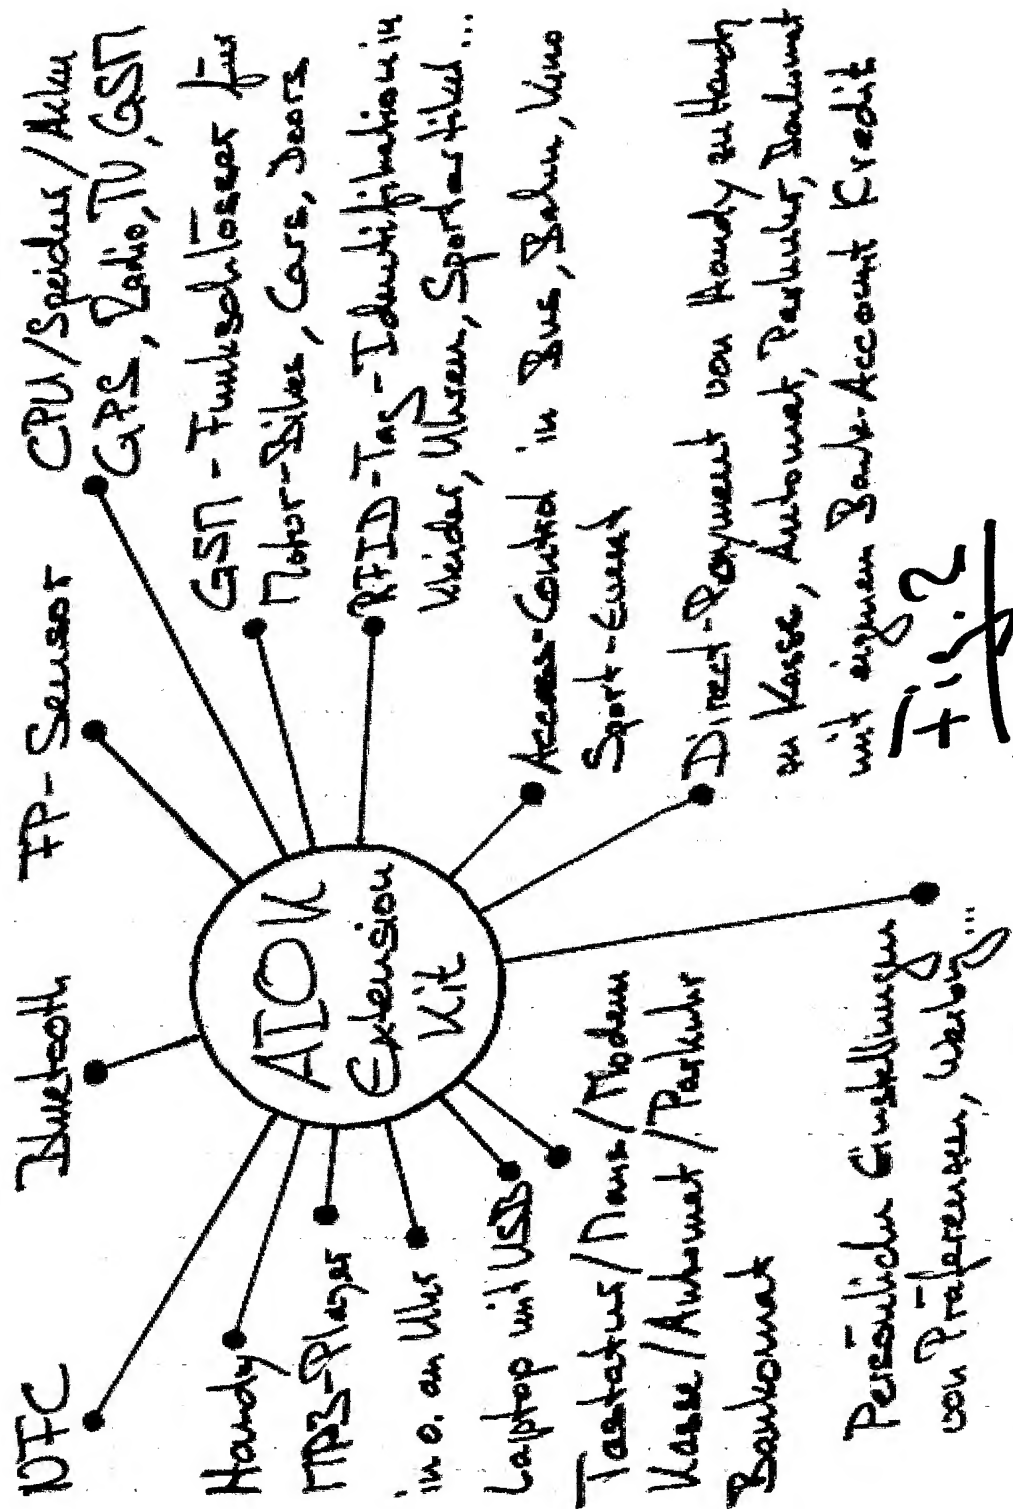 NFC
Bluetooth
FP-Sensor
CPU/Speicher/Akku
GPS, Radio, TV, GSM
GSM-Funkschlösser für
Motor-Bikes, Cars, Doors
RFID-Tag-Identifikation in
Kleider, Uhren, Sportartikel...
Access-Control in Bus, Bahn, Kino
Sport-Event
Direct-Payment von Handy zu Handy
zu Kasse, Automat, Parkuhr, Bankomat
mit eigenen Bank-Account Kredit
AIOK
Extension
Kit
Handy
MP3-Player
in o. an Uhr
Laptop mit USB
Tastatur/Maus/Modem
Kasse/Automat/Parkuhr
Bankomat
Persönliche Einstellungen
von Präferenzen, Werbg...
Fig. 2